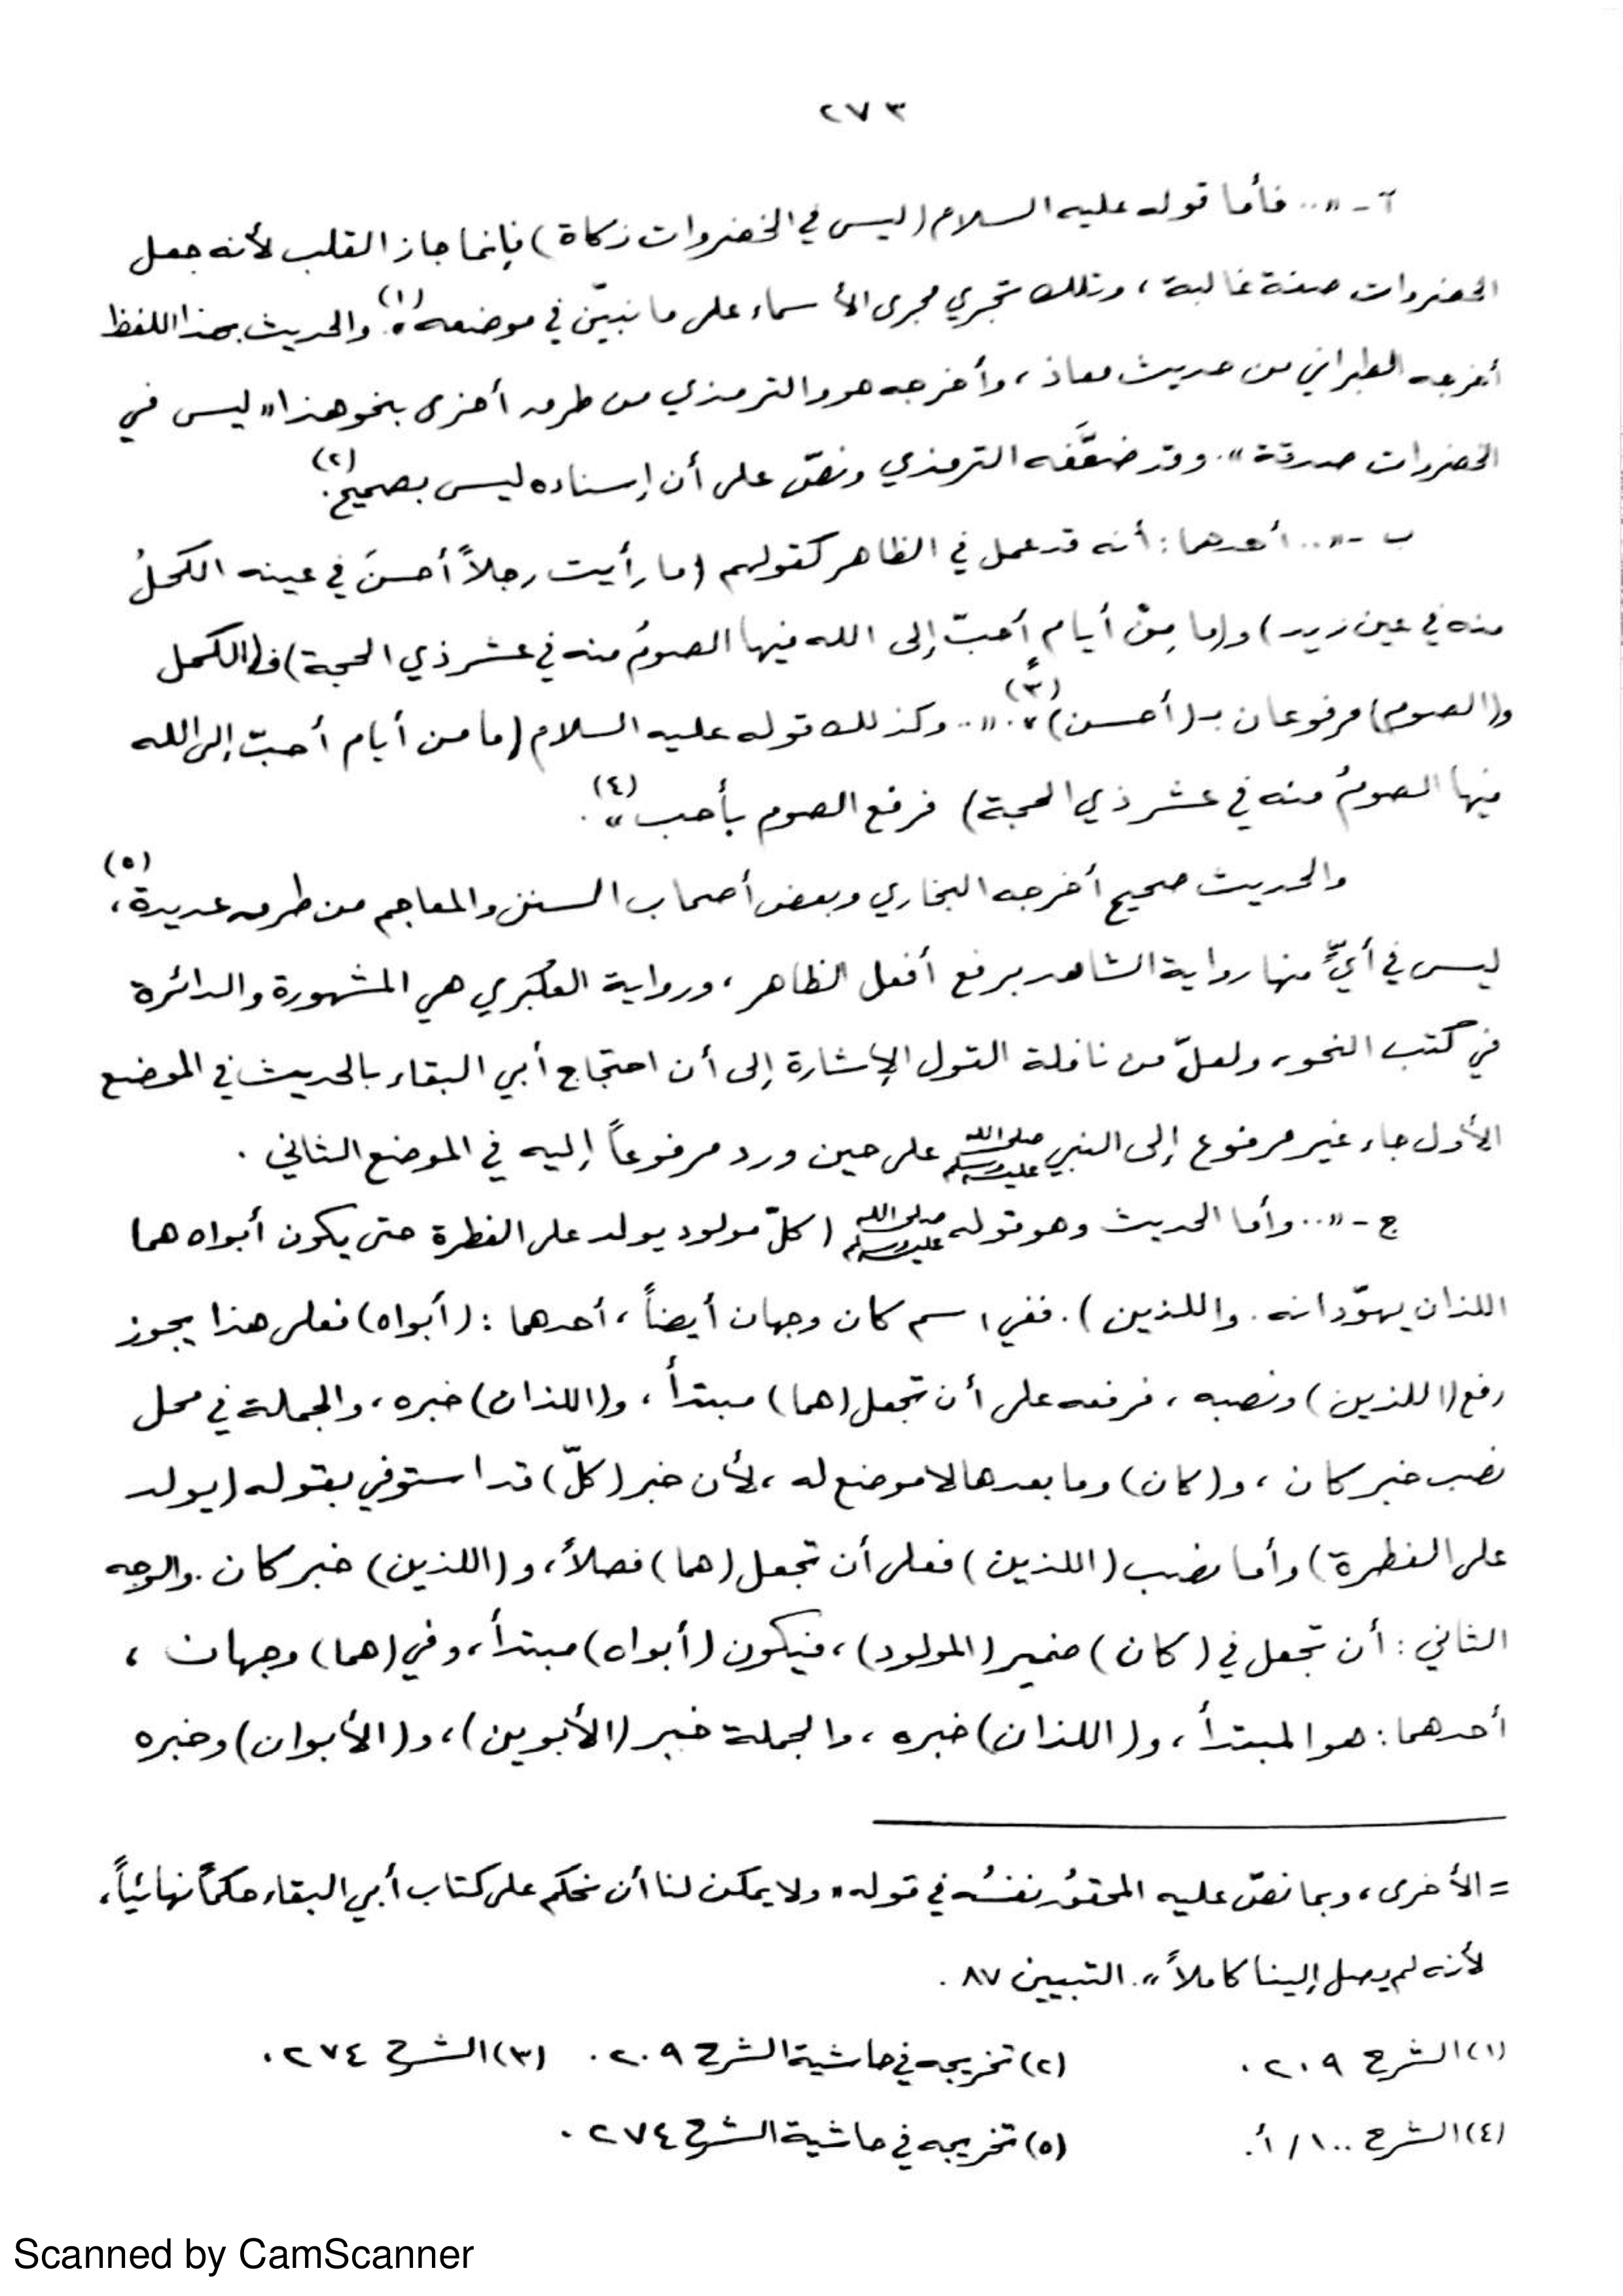 ٢٧٣
آ - « .. فأما قوله عليه السلام (ليس في الخضروات زكاة) فإنما جاز القلب لأنه جعل
الخضروات صفة غالبة، وتلك تجري مجرى الأسماء على ما نبيّن في موضعه»(١). والحديث بهذا اللفظ
أخرجه الطبراني من حديث معاذ، وأخرجه هو والترمذي من طرق أخرى بنحو هذا «ليس في
الخضروات صدقة». وقد ضعَّفه الترمذي ونصّ على أن إسناده ليس بصحيح(٢).
ب - « .. أحدهما: أنه قد عمل في الظاهر كقولهم (ما رأيت رجلاً أحسنَ في عينه الكحلُ
منه في عين زيد) و(ما مِنْ أيام أحبّ إلى الله فيها الصومُ منه في عشر ذي الحجة) فـ(الكحل
و(الصوم) مرفوعان بـ(أحسن)»(٣). « .. وكذلك قوله عليه السلام (ما من أيام أحبّ إلى الله
فيها الصومُ منه في عشر ذي الحجة) فرفع الصوم بأحب»(٤).
والحديث صحيح أخرجه البخاري وبعض أصحاب السنن والمعاجم من طرق عديدة(٥)،
ليس في أيٍّ منها رواية الشاهد برفع أفعل الظاهر، ورواية العُكبري هي المشهورة والدائرة
في كتب النحو، ولعلّ من نافلة القول الإشارة إلى أن احتجاج أبي البقاء بالحديث في الموضع
الأول جاء غير مرفوع إلى النبي ﷺ على حين ورد مرفوعاً إليه في الموضع الثاني.
ج - « .. وأما الحديث وهو قوله ﷺ (كلّ مولود يولد على الفطرة حتى يكون أبواه هما
اللذان يهوّدانه. واللذين). ففي اسم كان وجهان أيضاً، أحدهما: (أبواه) فعلى هذا يجوز
رفع (اللذين) ونصبه، فرفعه على أن تجعل (هما) مبتدأ، و(اللذان) خبره، والجملة في محل
نصب خبر كان، و(كان) وما بعدها لا موضع له، لأن خبر (كلّ) قد استوفي بقوله (يولد
على الفطرة) وأما نصب (اللذين) فعلى أن تجعل (هما) فصلاً، و(اللذين) خبر كان. والوجه
الثاني: أن تجعل في (كان) ضمير (المولود)، فيكون (أبواه) مبتدأ، وفي (هما) وجهان،
أحدهما: هو المبتدأ، و(اللذان) خبره، والجملة خبر (الأبوين)، و(الأبوان) وخبره
= الأخرى، وبما نصّ عليه المحققُ نفسُه في قوله «ولا يمكن لنا أن نحكم على كتاب أبي البقاء حكماً نهائياً،
لأنه لم يصل إلينا كاملاً». التبيين ٨٧.
(١) الشرح ٢٠٩. (٢) تخريجه في حاشية الشرح ٢٠٩. (٣) الشرح ٢٧٤.
(٤) الشرح ١٠٠/أ. (٥) تخريجه في حاشية الشرح ٢٧٤.
Scanned by CamScanner